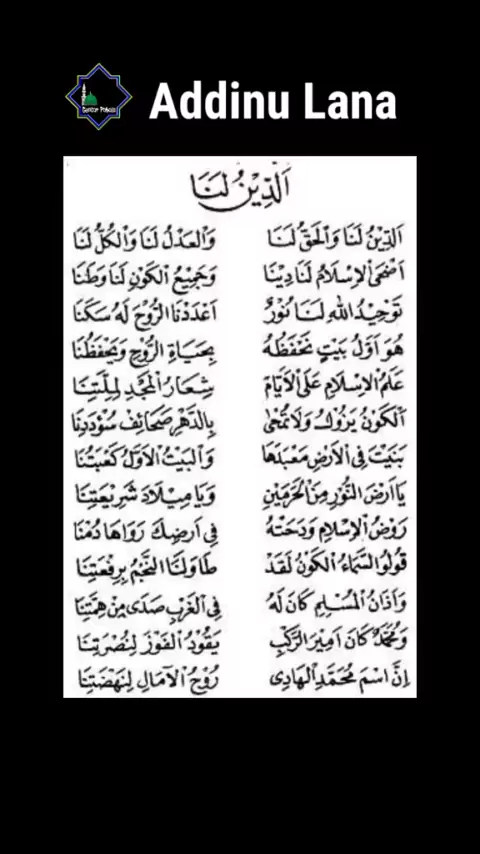 Addinu Lana
اَلدِّيْنُ لَنَا
اَلدِّيْنُ لَنَا وَالْحَقُّ لَنَا وَالْعَدْلُ لَنَا وَالْكُلُّ لَنَا
اَضْحَى الْاِسْلَامُ لَنَا دِيْنَا وَجَمِيْعُ الْكَوْنِ لَنَا وَطَنَا
تَوْحِيْدُ اللهِ لَنَا نُوْرٌ اَعْدَدْنَا الرُّوْحَ لَهُ سَكَنَا
هُوَ اَوَّلُ بَيْتٍ نَحْفَظُهُ بِحَيَاةِ الرُّوْحِ وَيَحْفَظُنَا
عَلَمُ الْاِسْلَامِ عَلَى الْاَيَّامِ شِعَارُ الْمَجْدِ لِمِلَّتِنَا
اَلْكَوْنُ يَزُوْلُ وَلَا تُمْحٰى بِالدَّهْرِ صَحَائِفُ سُؤْدَدِنَا
بَنَيْتَ فِى الْاَرْضِ مَعْبَدَهَا وَالْبَيْتُ الْاَوَّلُ كَعْبَتُنَا
يَا اَرْضَ النُّوْرِ مِنَ الْحَرَمَيْنِ وَيَا مِيْلَادَ شَرِيْعَتِنَا
رَوْضُ الْاِسْلَامِ وَدَحَتْهُ فِى اَرْضِكَ رَوَاهَا دُمْنَا
قُوْلُوْا السَّمَاءُ الْكَوْنُ لَقَدْ طَاوَلَنَا النَّجْمُ بِرِفْعَتِنَا
وَاَذَانُ الْمُسْلِمِ كَانَ لَهُ فِى الْغَرْبِ صَدَى مِنْ هِمَّتِنَا
وَمُحَمَّدٌ كَانَ اَمِيْرَ الرَّكْبِ يَقُوْدُ الْفَوْزَ لِنُصْرَتِنَا
اِنَّ اسْمَ مُحَمَّدِ الْهَادِى رُوْحُ الْاٰمَالِ لِنَهْضَتِنَا